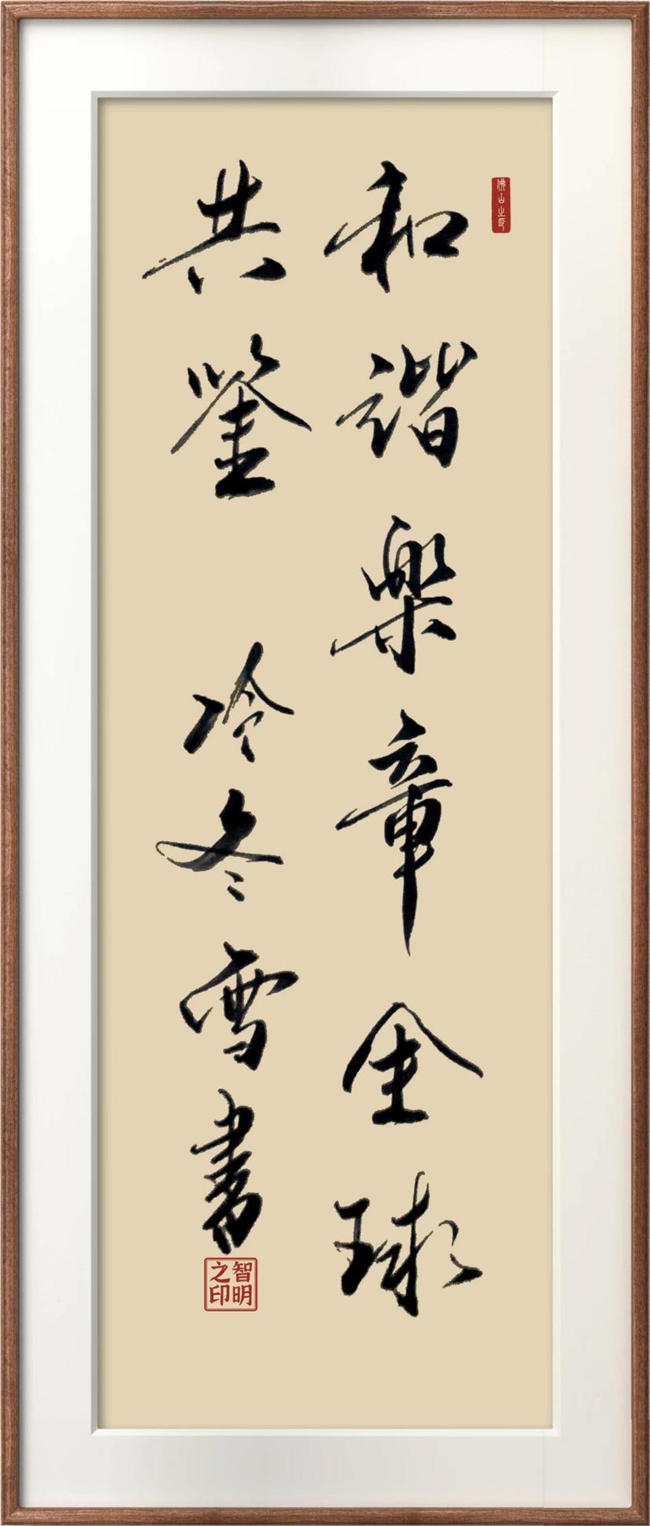 和諧樂章全球
共鑒
冷冬雪書
智明之印